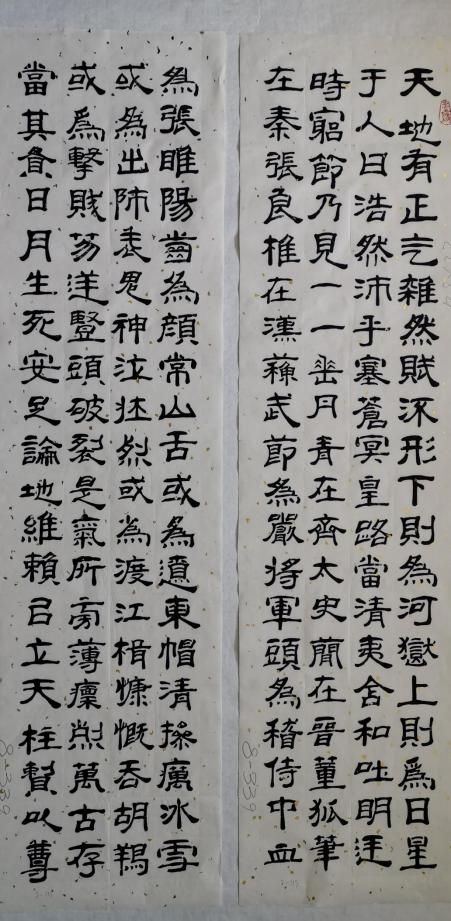 天地有正气雜然賦流形下則為河嶽上則爲日星
于人曰浩然沛乎塞蒼冥皇路當清夷含和吐明廷
時窮節乃見一一垂丹青在齊太史簡在晉董狐筆
在秦張良椎在漢蘇武節為嚴將軍頭為稽侍中血
為張睢陽齒為顏常山舌或為遼東帽清操厲冰雪
或為出師表鬼神泣壯烈或為渡江楫慷慨吞胡羯
或爲擊賊笏逆豎頭破裂是氣所旁薄凜烈萬古存
當其貫日月生死安足論地維賴以立天柱贊以尊
8-339
8-339